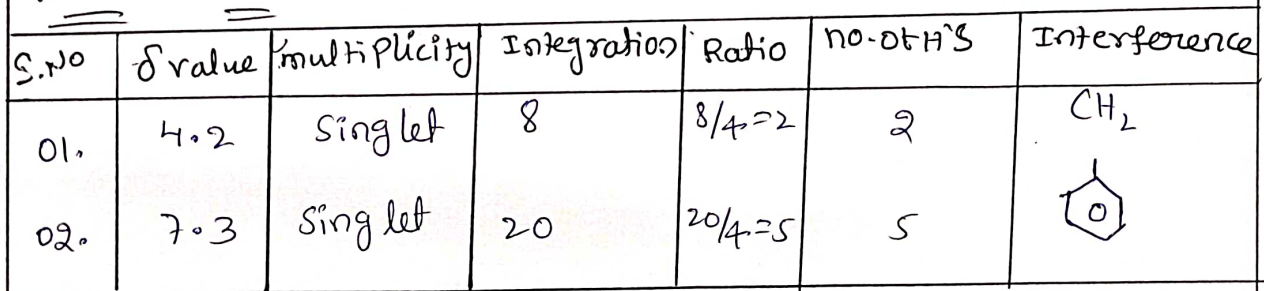 S.NO δ value multiplicity Integration Ratio no.of H'S Interference
01. 4.2 Singlet 8 8/4=2 2 CH₂
02. 7.3 Singlet 20 20/4=5 5